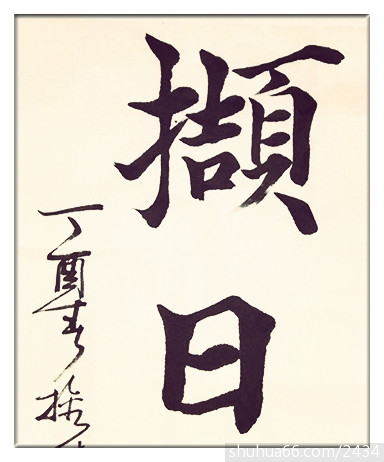 擷
日
丁酉春
shuhua66.com/2434